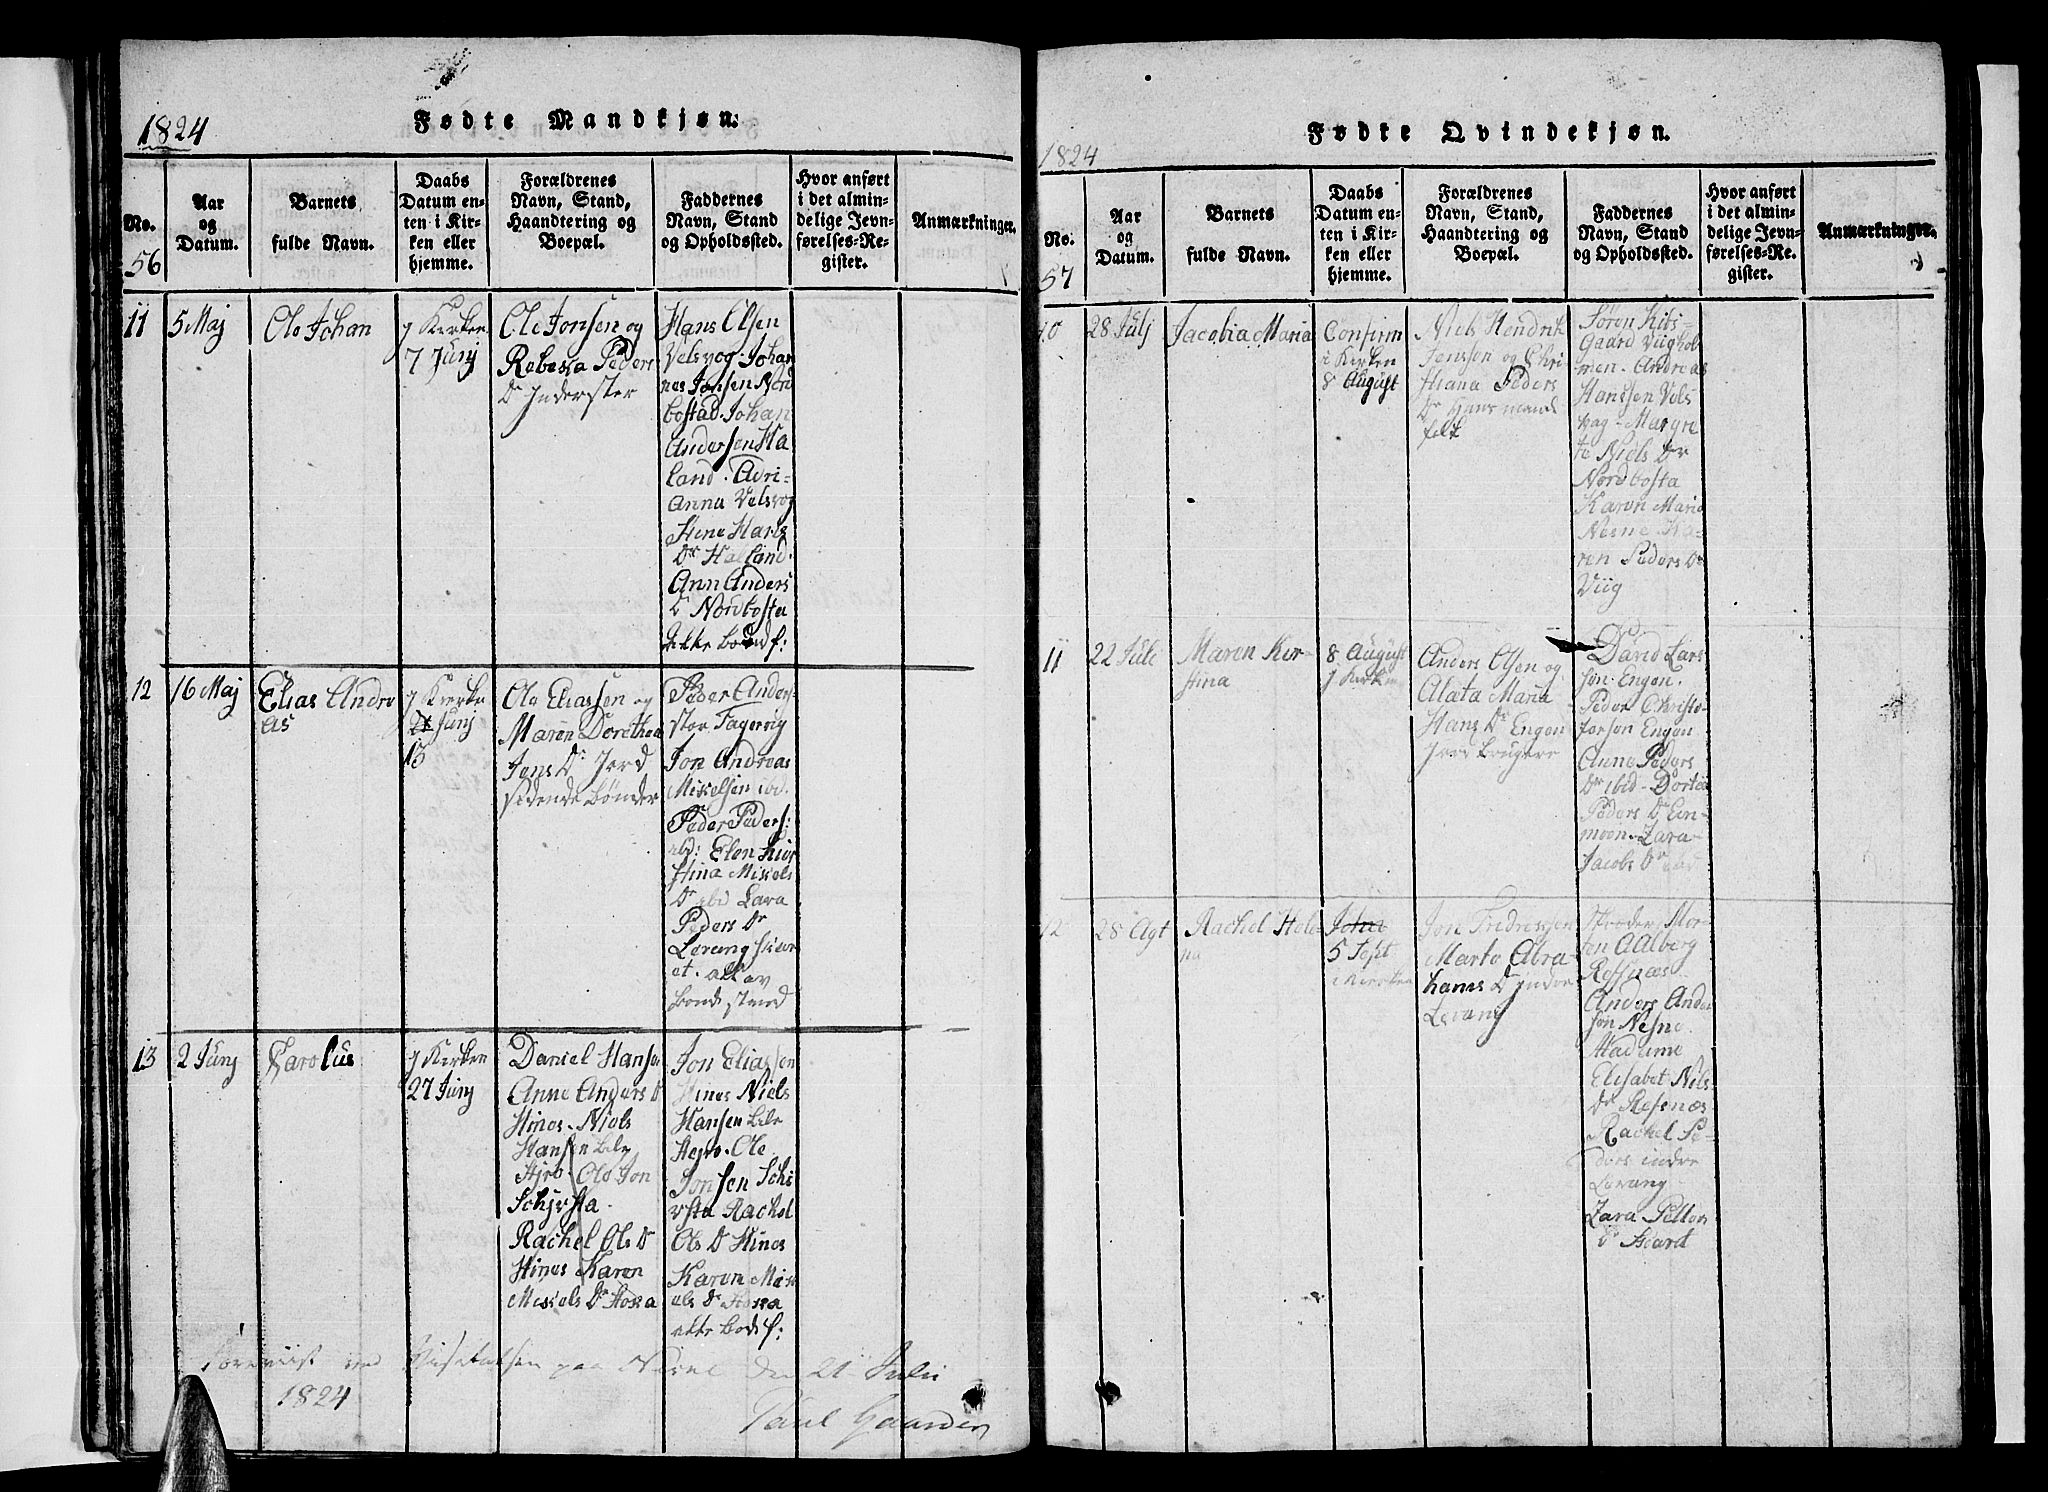 1824
Fødte Mandkjøn.
No.
56
Aar
og
Datum.
Barnets
fulde Navn.
Daabs
Datum en-
ten i Kir-
ken eller
hjemme.
Forældrenes
Navn, Stand,
Haandtering og
Boepæl.
Faddernes
Navn, Stand
og Opholdssted.
Hvor anført
i det almin-
delige Jevn-
førelses-Re-
gister.
Anmærkninger.
11
5 Maj
Ole Johan
J Kirken
7 Junj
Ole Jonsen og
Rebeka Peders
Dr Inderster
Hans Olsen
Velsvog. Johan
nes Jonsen Nord
bostad. Johan
Andersen Ha
land. Adri-
anna Velsvog
Stene Hans
Dr Halland.
Ann Anders
D Nordbosta
12
16 Maj
Elias Andre
as
J Kirke
Junj
13
Ole Eliassen og
Maren Dorethea
Jens Dr Jord
sidende bønder
Peder Ander-
Fagervig
Jon Andreas
Mikelsen ibd.
Peder Peders:
ibd: Elen Kir
stina Mikels
Dr ibid Zara
Peders Dr
Levang
et. alle av
bonde stand
13
2 Junj
Karolus
J Kirken
27 Junj
Daniel Hansen
Anne Anders D
Hines. Niels
Hansen
Ole Jon
Rachel Ols D
Hines Karen
Mikels Dr
Jon Eliassen
Hines Niels
Hansen
Ole
Jonsen
Rachel
Ols D Hines
Karen Mik
els Dr
Foreviist ved Visitatsen paa Nesne den 21 Julii
1824
Gaarder
1824
Fødte Qvindekjøn.
No.
57
Aar
og
Datum.
Barnets
fulde Navn.
Daabs
Datum en-
ten i Kir-
ken eller
hjemme.
Forældrenes
Navn, Stand,
Haandtering og
Boepæl.
Faddernes
Navn, Stand
og Opholdssted.
Hvor anført
i det almin-
delige Jevn-
førelses-Re-
gister.
Anmærkninger.
10
28 Julj
Jacobia Maria
Confirm
i Kirken
8 August
Niels Hendrik
Jenssen og Chri
stiana Peders
Dr Huusmand
Søren
gaard Viighol
men. Andreas
Hanssen Vels
vag - Margre
te Niels Dr
Nordbosta
Karen Maria
Nesne. Ka-
ren Peders Dr
Viig
11
22 Juli
Maren Kir-
stina
8 August
J Kirken
Anders Olsen og
Aleta Maria
Hans Dr Engen
Jord brugere
David Lars
søn Engen.
Peder Christo-
ferson Engen
Anne Peders
Dr ibid - Dortea
Peders Dr
Zara
Jacobs Dr
12
28 Agt
Rachel Hele
na
5 Sept
i Kirken
Jon Fredrecksen
Marte Abra-
hams D Indre
Levang
Morten
Aalberg
Resnæs
Anders Ander
søn Nesne.
Madame
Elisabet Niels
Dr Resnæs
Rachel Pe-
ders indre
Levang
Zara